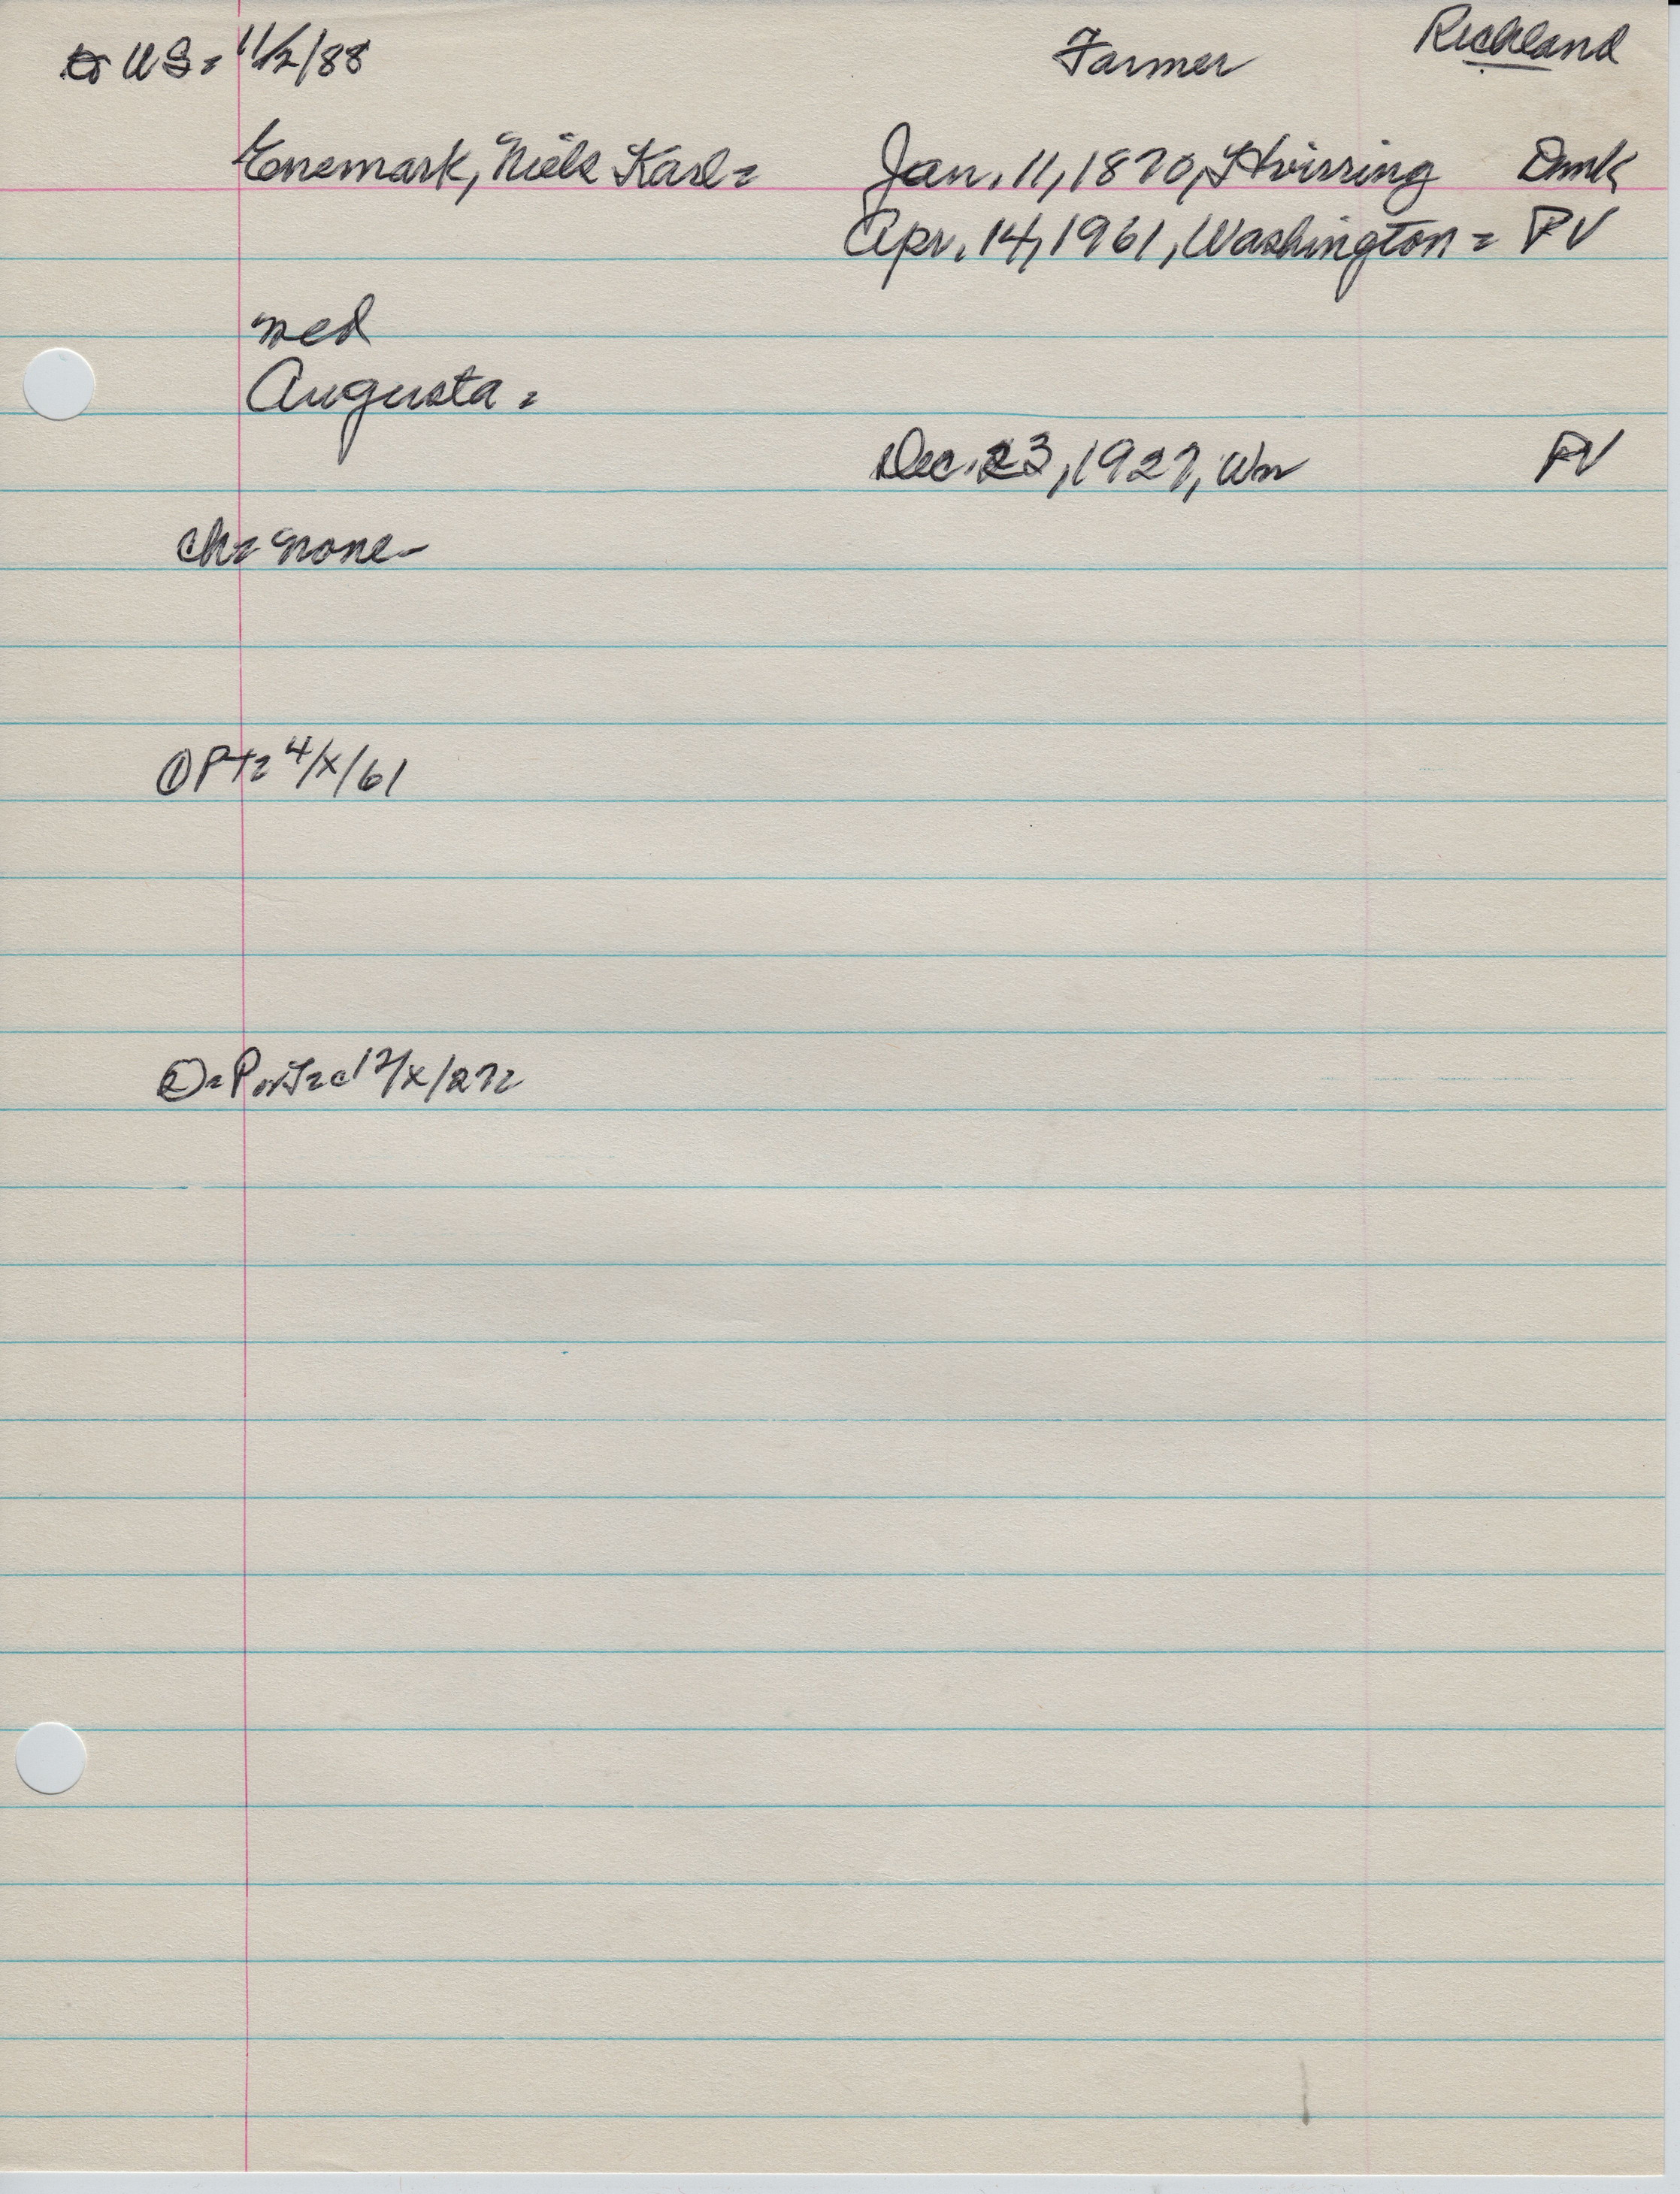 to US = 11/2/88 Farmer Richland
Enemark, Niels Karl = Jan. 11, 1870, Hvirring Dmk
Apr. 14, 1961, Washington = PV
med
Augusta =
Dec. 23, 1927, Wn PV
ch = none -
① PT = 4/X/61
② = Port = c 12/X/27 =